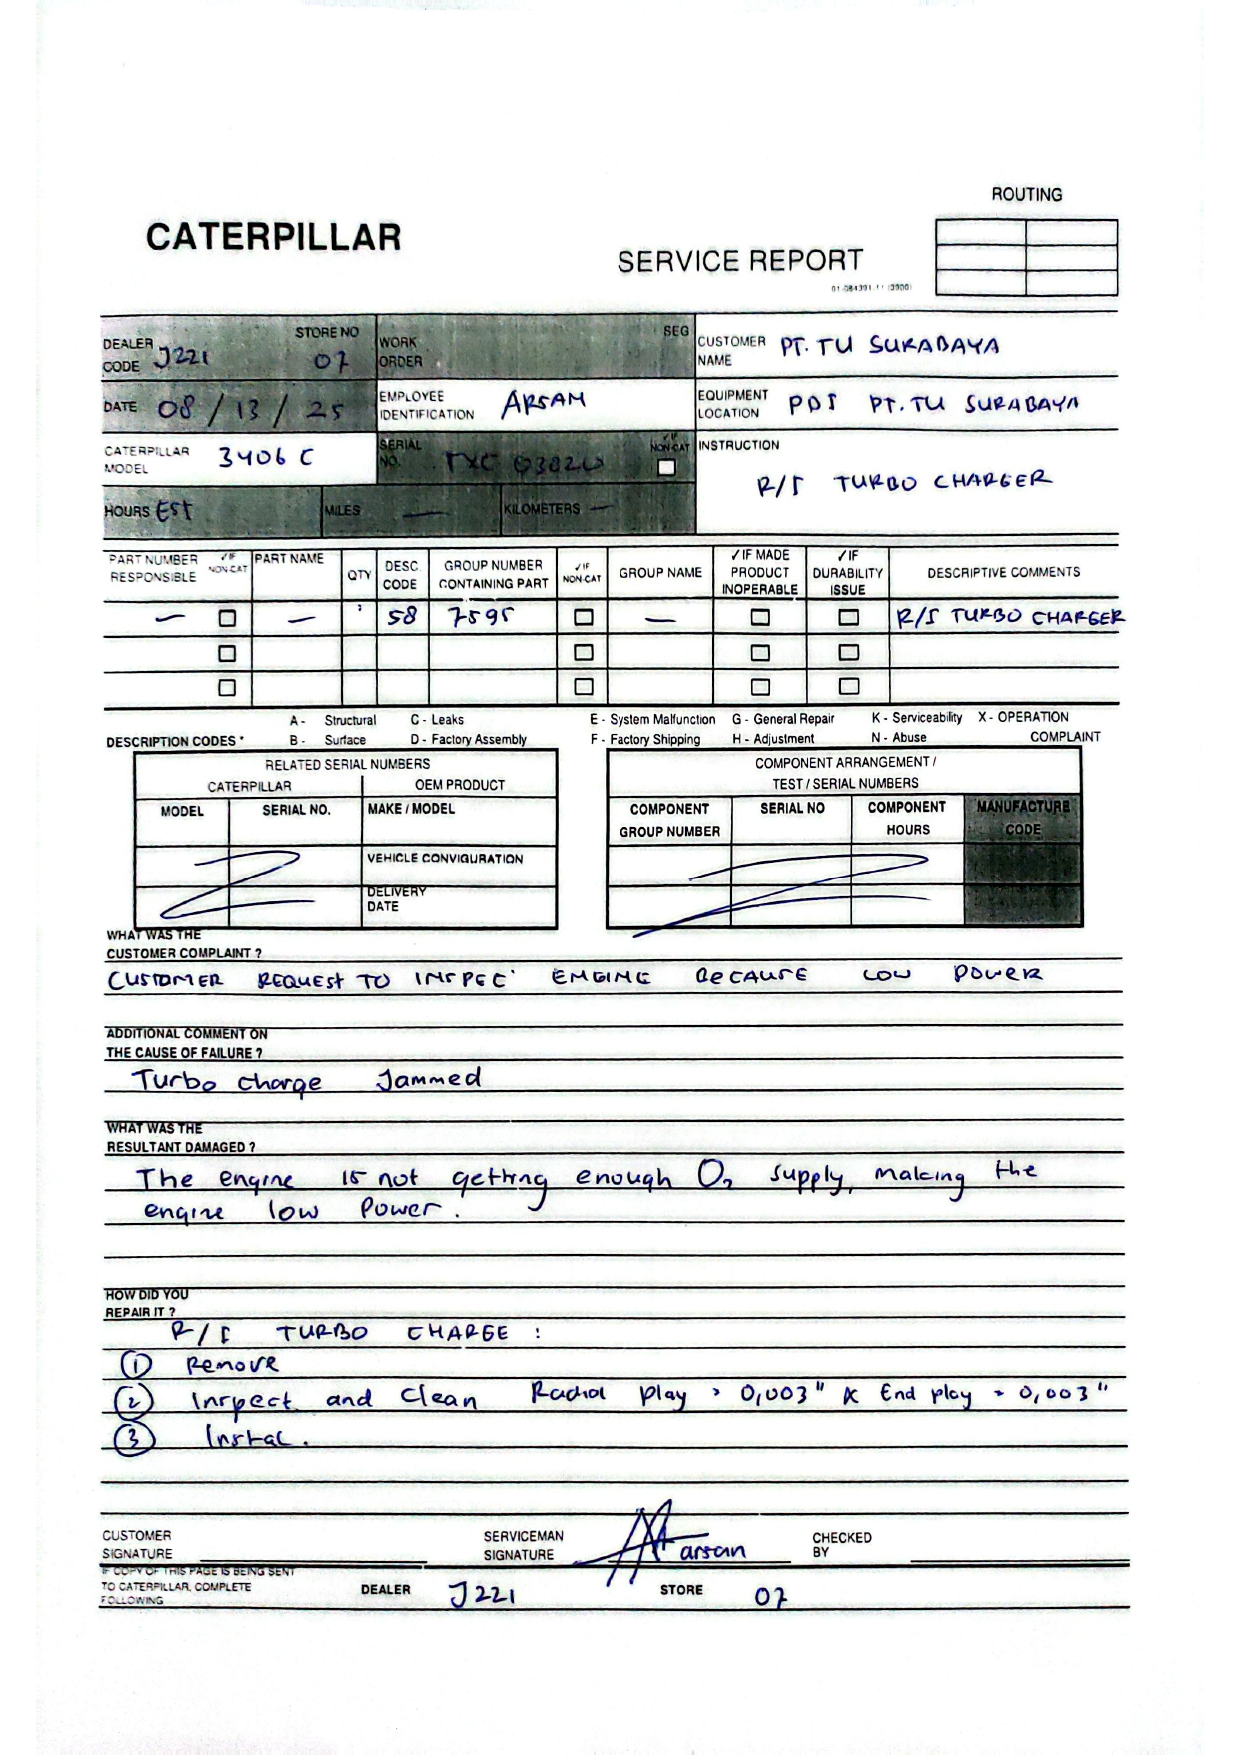 ROUTING
CATERPILLAR
SERVICE REPORT
DEALER CODE J221 STORE NO 07
WORK ORDER SEG
CUSTOMER NAME PT. TU SURABAYA
DATE 08 / 13 / 25
EMPLOYEE IDENTIFICATION ARSAM
EQUIPMENT LOCATION PDI PT. TU SURABAYA
CATERPILLAR MODEL 3406 C
SERIAL NO. ✓IF NON-CAT
INSTRUCTION
R/I TURBO CHARGER
HOURS EST MILES — KILOMETERS —
PART NUMBER RESPONSIBLE ✓IF NON-CAT PART NAME QTY DESC CODE GROUP NUMBER CONTAINING PART ✓IF NON-CAT GROUP NAME ✓IF MADE PRODUCT INOPERABLE ✓IF DURABILITY ISSUE DESCRIPTIVE COMMENTS
— — 58 7595 — R/I TURBO CHARGER
A - Structural C - Leaks E - System Malfunction G - General Repair K - Serviceability X - OPERATION
DESCRIPTION CODES * B - Surface D - Factory Assembly F - Factory Shipping H - Adjustment N - Abuse COMPLAINT
RELATED SERIAL NUMBERS
CATERPILLAR OEM PRODUCT
MODEL SERIAL NO. MAKE / MODEL
VEHICLE CONVIGURATION
DELIVERY
DATE
COMPONENT ARRANGEMENT /
TEST / SERIAL NUMBERS
COMPONENT GROUP NUMBER SERIAL NO COMPONENT HOURS MANUFACTURE CODE
WHAT WAS THE
CUSTOMER COMPLAINT ?
CUSTOMER REQUEST TO INSPEC ENGINE BECAUSE LOW POWER
ADDITIONAL COMMENT ON
THE CAUSE OF FAILURE ?
Turbo charge Jammed
WHAT WAS THE
RESULTANT DAMAGED ?
The engine is not getting enough O2 supply, making the
engine low Power.
HOW DID YOU
REPAIR IT ?
R/I TURBO CHARGE :
① Remove
② Inspect and Clean Radial play = 0,003" & End play = 0,003"
③ Instal.
CUSTOMER SIGNATURE
SERVICEMAN SIGNATURE arsan
CHECKED BY
IF COPY OF THIS PAGE IS BEING SENT
TO CATERPILLAR, COMPLETE
FOLLOWING
DEALER J221 STORE 07